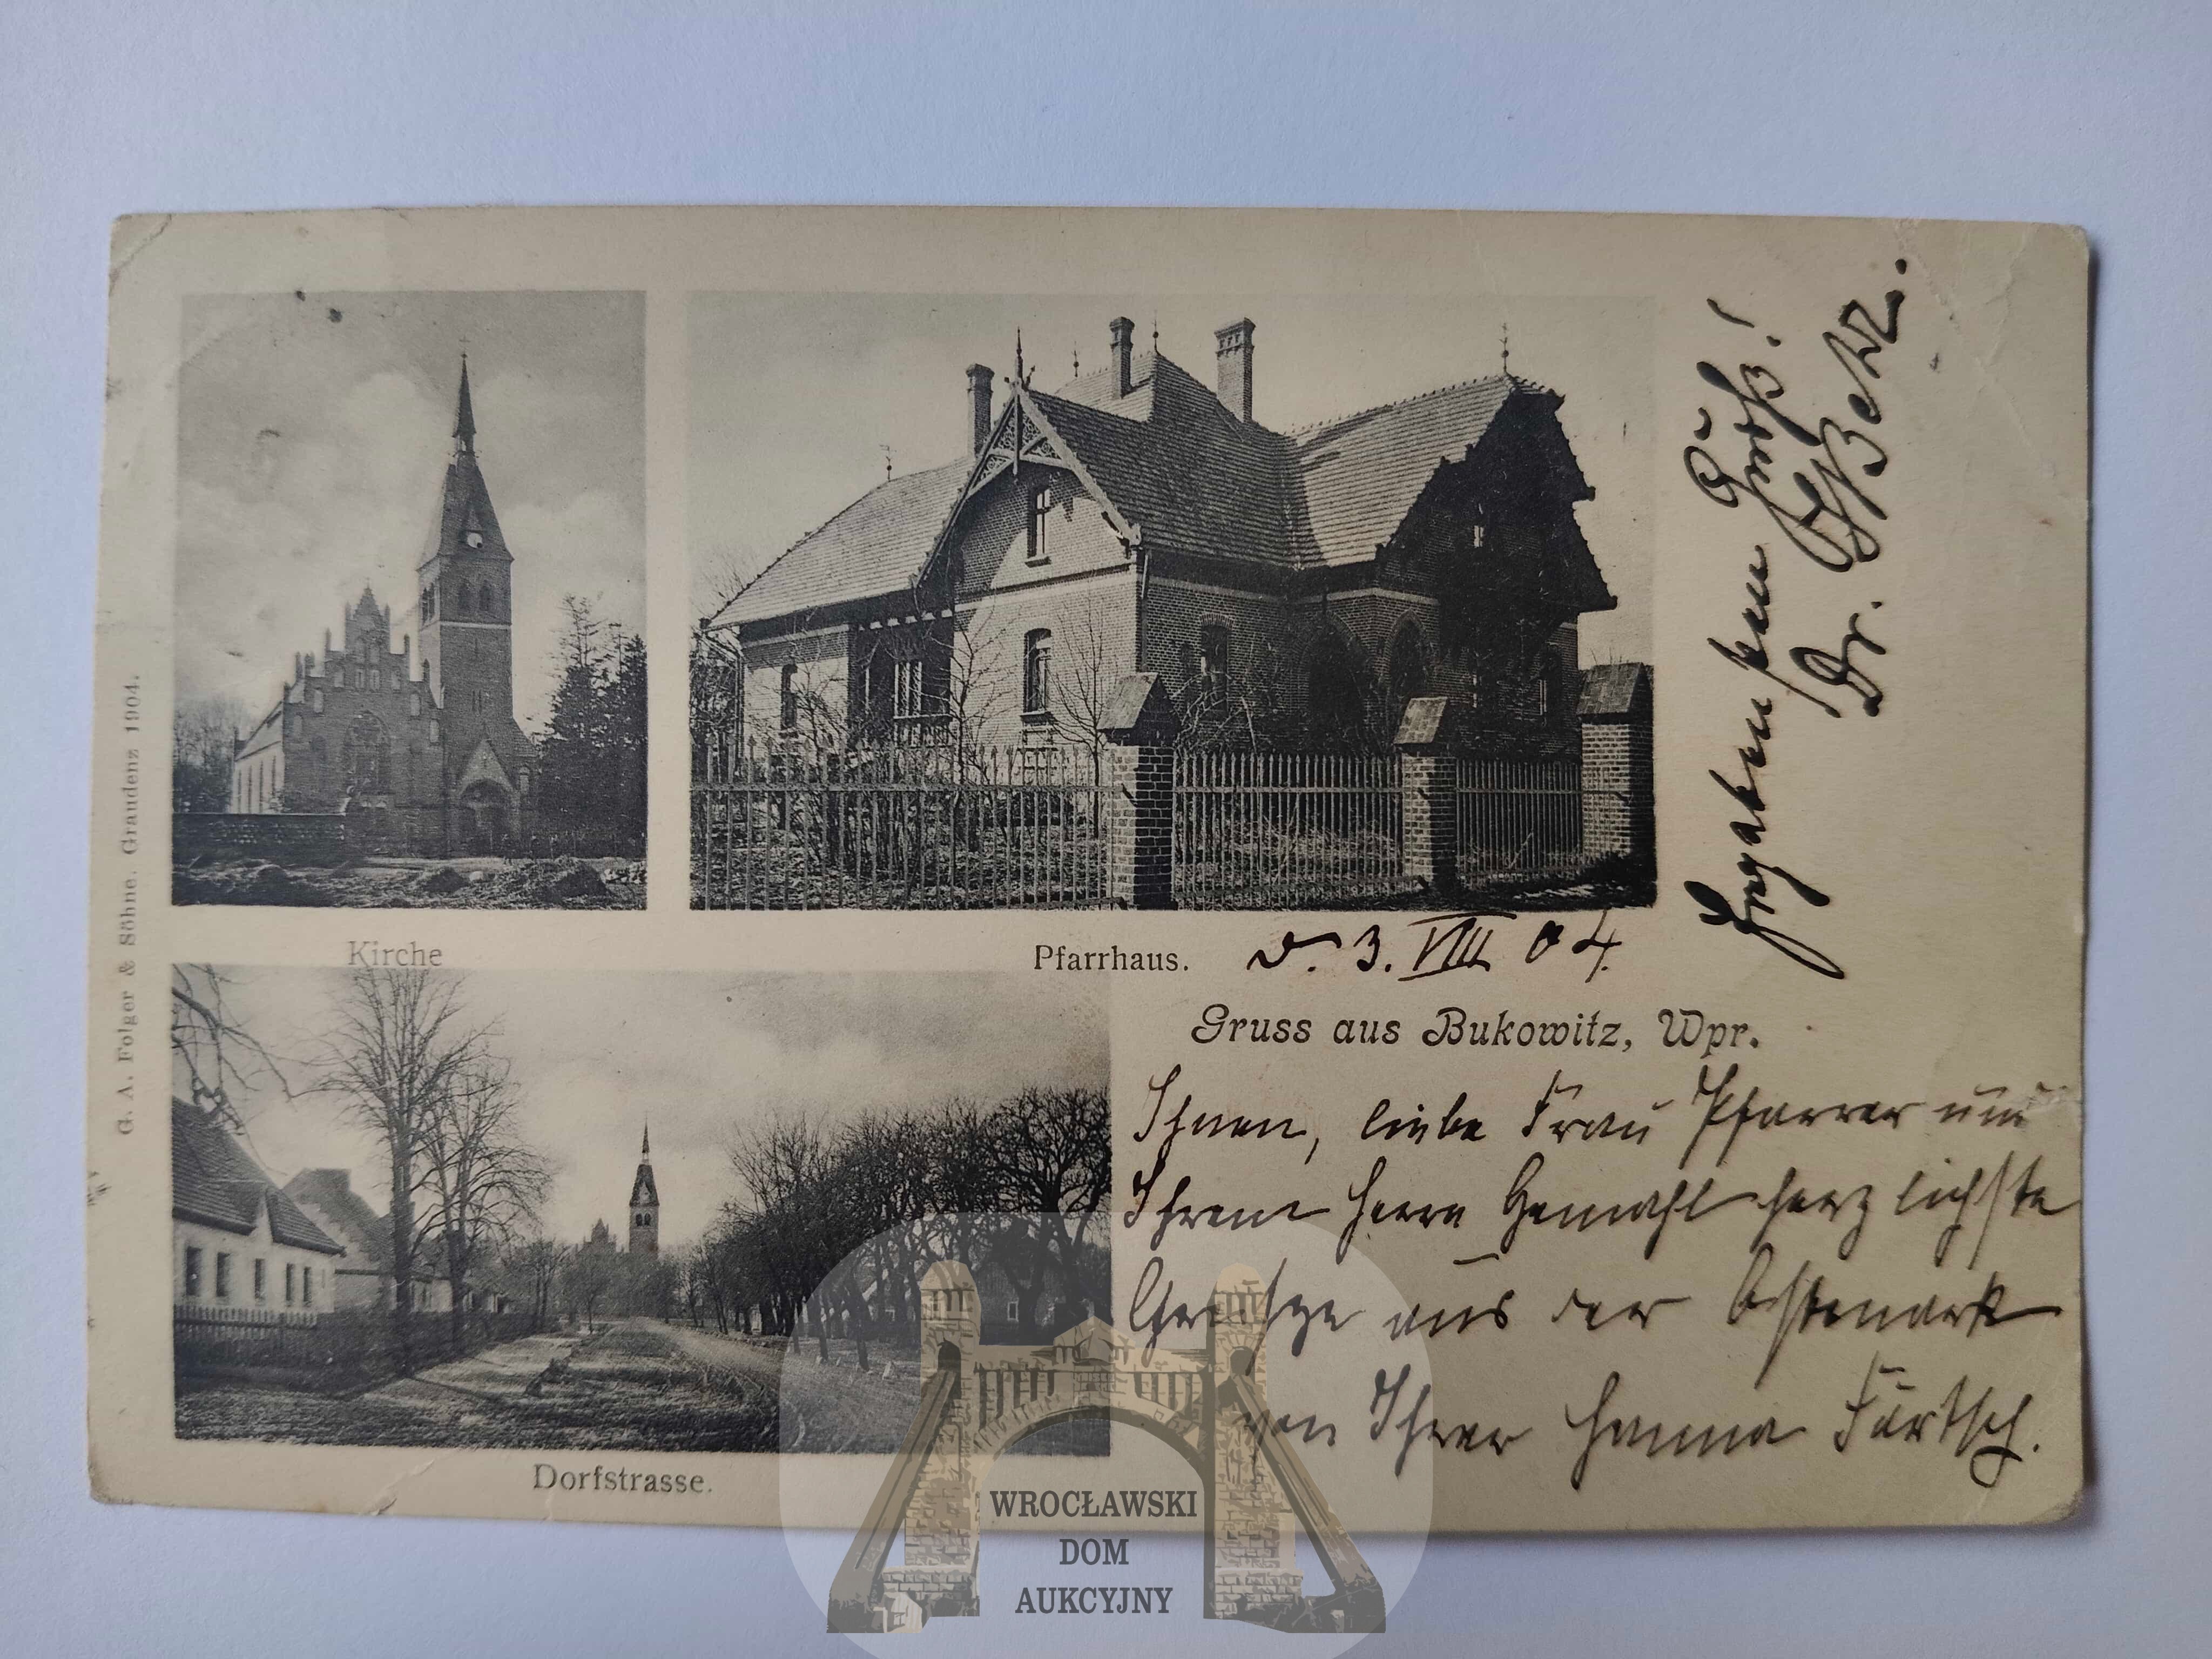 G. A. Folger & Söhne. Graudenz 1904.
Kirche
Pfarrhaus.
d. 3. VIII 04.
Gruss aus Bukowitz, Wpr.
Ihnen, liebe Frau Pfarrer und
Ihrem Herrn Gemahl herzlichste
Grüsze aus der Ostmark
von Ihrer Hanna
Dorfstrasse.
Ergebensten Gruß!
Dr.
WROCŁAWSKI
DOM
AUKCYJNY